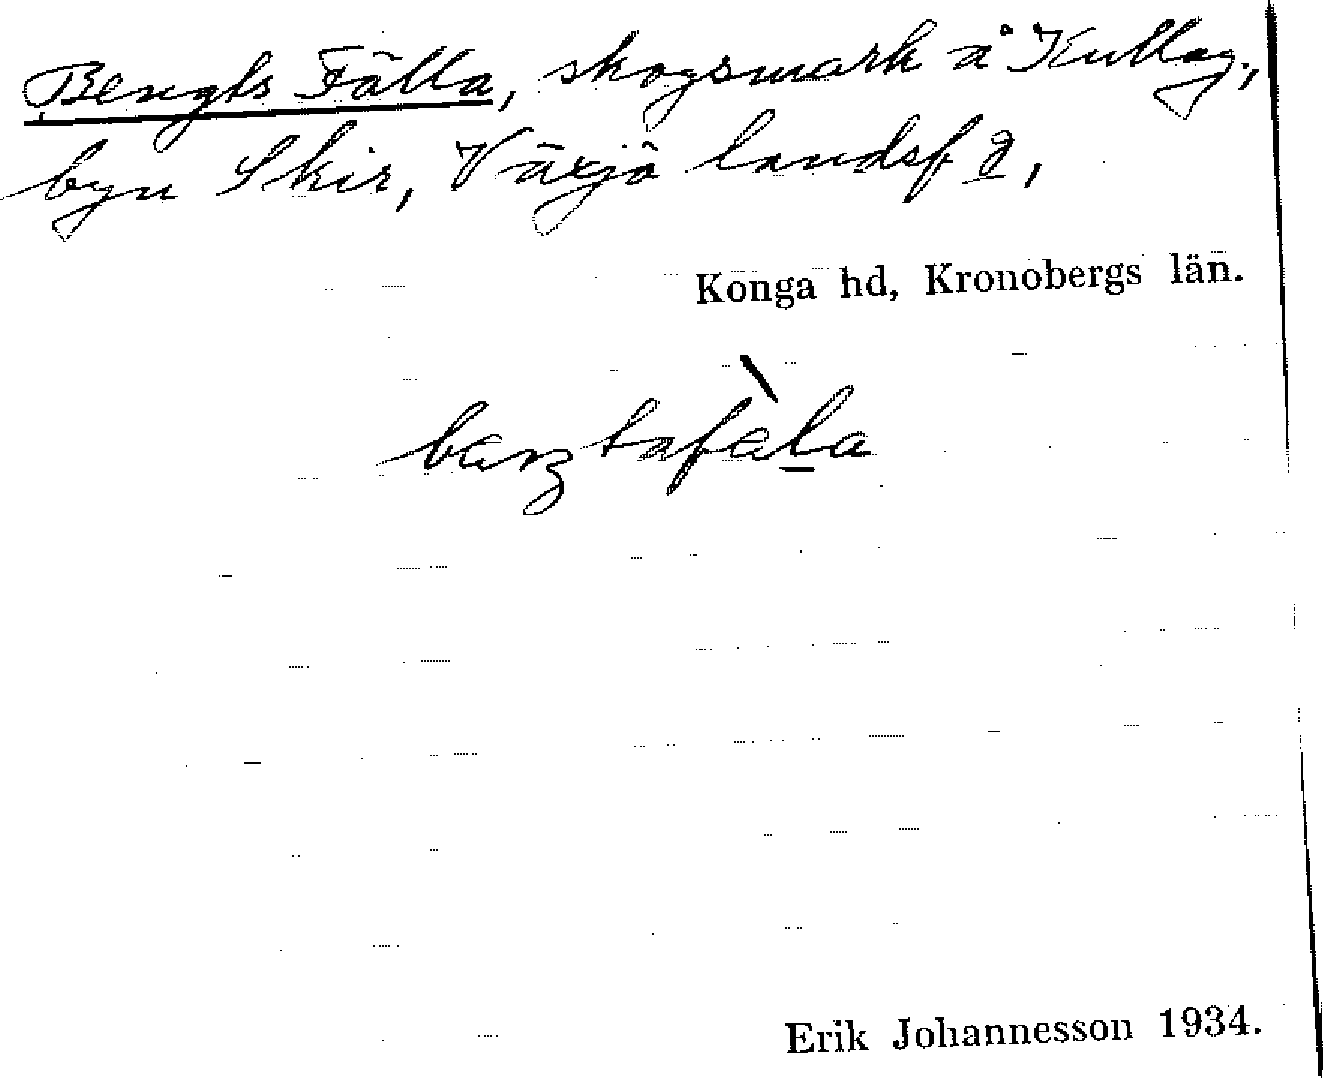 Bengts Fälla, skogsmark å Kullag.,
byn Skir, Växjö landsf
Konga hd, Kronobergs län.
Erik Johannesson 1934.